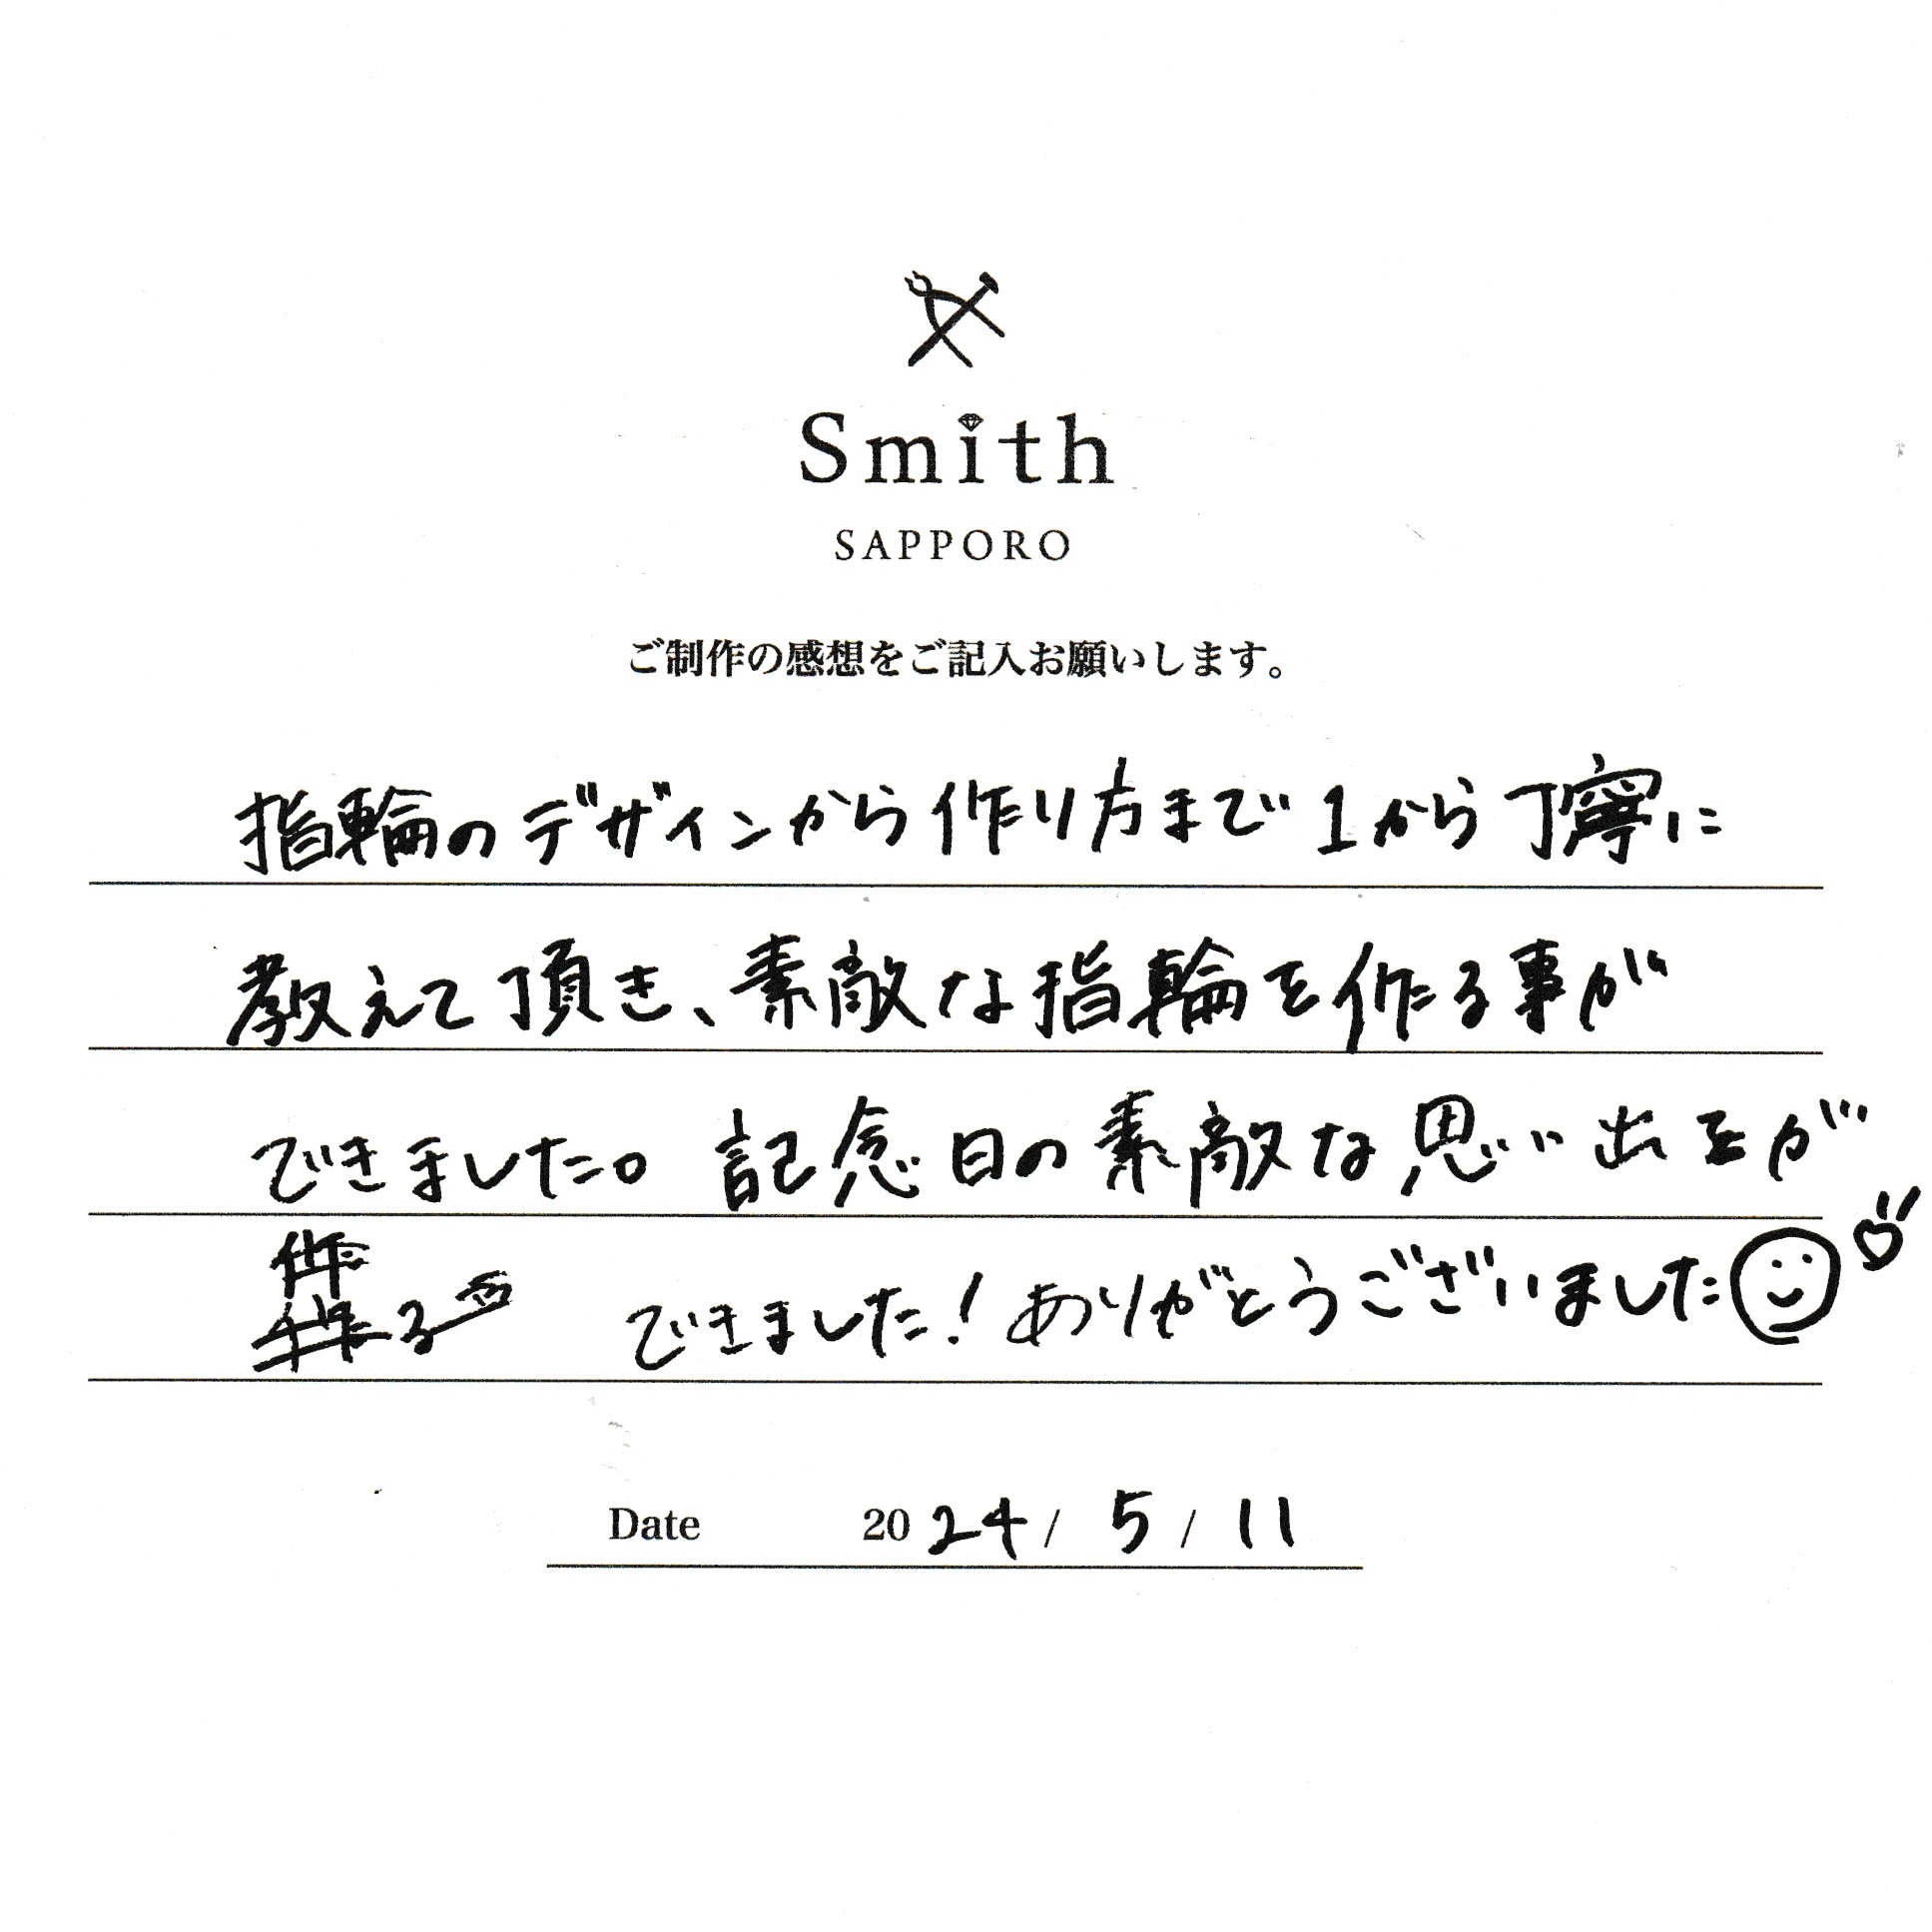 Smith
SAPPORO
ご制作の感想をご記入お願いします。
指輪のデザインから作り方まで1から丁寧に
教えて頂き、素敵な指輪を作る事が
できました。記念日の素敵な思い出をが
作
る できました!ありがとうございました
Date 2024/5/11